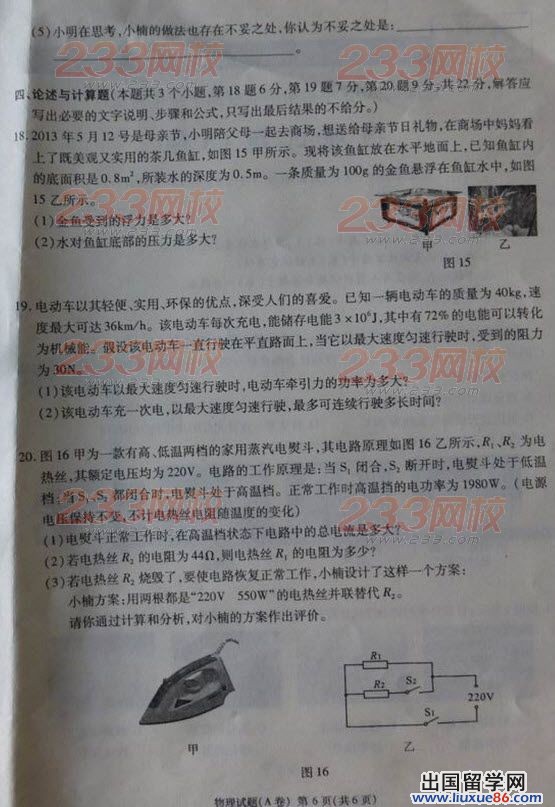 (5)小明在思考,小楠的做法也存在不妥之处,你认为不妥之处是:
。
四、论述与计算题(本题共3个小题,第18题6分,第19题7分,第20题9分,共22分,解答应
写出必要的文字说明、步骤和公式,只写出最后结果的不给分。)
18.2013年5月12号是母亲节,小明陪父母一起去商场,想送给母亲节日礼物,在商场中妈妈看
上了既美观又实用的茶几鱼缸,如图15甲所示。现将该鱼缸放在水平地面上,已知鱼缸内
的底面积是0.8m²,所装水的深度为0.5m。一条质量为100g的金鱼悬浮在鱼缸水中,如图
15乙所示。
(1)金鱼受到的浮力是多大?
(2)水对鱼缸底部的压力是多大?
甲 乙
图15
19.电动车以其轻便、实用、环保的优点,深受人们的喜爱。已知一辆电动车的质量为40kg,速
度最大可达36km/h。该电动车每次充电,能储存电能3×10⁶J,其中有72%的电能可以转化
为机械能。假设该电动车一直行驶在平直路面上,当它以最大速度匀速行驶时,受到的阻力
为30N。
(1)该电动车以最大速度匀速行驶时,电动车牵引力的功率为多大?
(2)该电动车充一次电,以最大速度匀速行驶,最多可连续行驶多长时间?
20.图16甲为一款有高、低温两档的家用蒸汽电熨斗,其电路原理如图16乙所示,R₁、R₂为电
热丝,其额定电压均为220V。电路的工作原理是:当S₁闭合,S₂断开时,电熨斗处于低温
档;当S₁、S₂都闭合时,电熨斗处于高温档。正常工作时高温挡的电功率为1980W。(电源
电压保持不变,不计电热丝电阻随温度的变化)
(1)电熨斗正常工作时,在高温档状态下电路中的总电流是多大?
(2)若电热丝R₂的电阻为44Ω,则电热丝R₁的电阻为多少?
(3)若电热丝R₂烧毁了,要使电路恢复正常工作,小楠设计了这样一个方案:
小楠方案:用两根都是“220V 550W”的电热丝并联替代R₂。
请你通过计算和分析,对小楠的方案作出评价。
R₁
R₂
S₂
220V
S₁
甲 乙
图16
物理试题(A卷) 第6页(共6页)
233网校
www.233.com
233网校
www.233.com
233网校
www.233.com
233网校
www.233.com
233网校
www.233.com
233网校
www.233.com
出国留学网
www.liuxue86.com